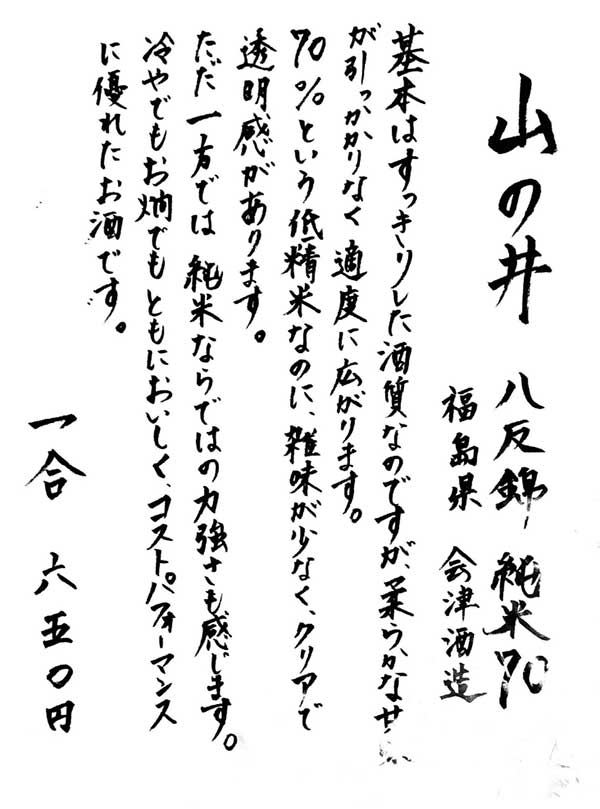 山の井 八反錦 純米70
福島県 会津酒造
基本はすっきりした酒質なのですが、柔らかなせ
が引っかかりなく適度に広がります。
70%という低精米なのに、雑味が少なく、クリアで
透明感があります。
ただ一方では純米ならではの力強さも感じます。
冷やでもお燗でもともにおいしく、コストパフォーマンス
に優れたお酒です。
一合 六五〇円